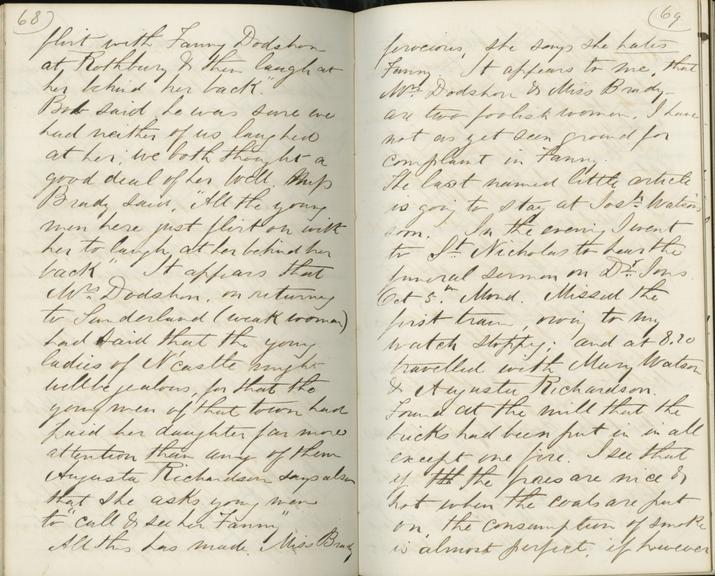 68
flirt with Fanny Dodshon
at Rothbury & then laugh at
her behind her back."
Bob said, he was sure we
had neither of us laughed
at her; we both thought a
good deal of her. Well Miss
Brady said, "All the young
men here just flirt on with
her to laugh at her behind her
back" It appears that
Mrs. Dodshon, on returning
to Sunderland (weak woman)
had said that the young
ladies of N'castle might
well be jealous, for that the
young men of that town had
paid her daughter far more
attention than any of them
Augusta Richardson says also
that she asks young men
to "call & see her Fanny"
All this has made Miss Brady
69
ferocious, she says she hates
Fanny. It appears to me, that
Mrs. Dodshon & Miss Brady
are two foolish women. I have
not as yet seen ground for
complaint in Fanny.
The last named little article
is going to stay at Josh. Watson's
soon. In the evening I went
to St. Nicholas to hear the
funeral sermon on Dr.
Oct 5th. Mond. Missed the
first train, owing to my
watch stopping; and at 8.20
travelled with Mary Watson
& Augusta Richardson.
Found at the mill that the
bricks had been put in in all
except one fire. I see that
if the fires are nice &
hot when the coals are put
on, the consumption of smoke
is almost perfect, if however